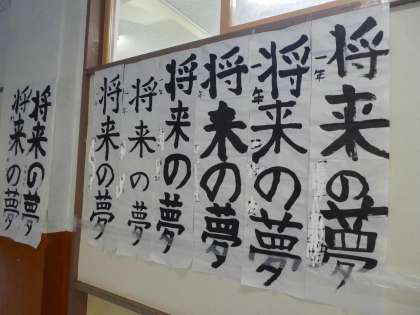 将来の夢
一年
将来の夢
一年
将来の夢
将来の夢
将来の夢
将来の夢
将来の夢
将来の夢